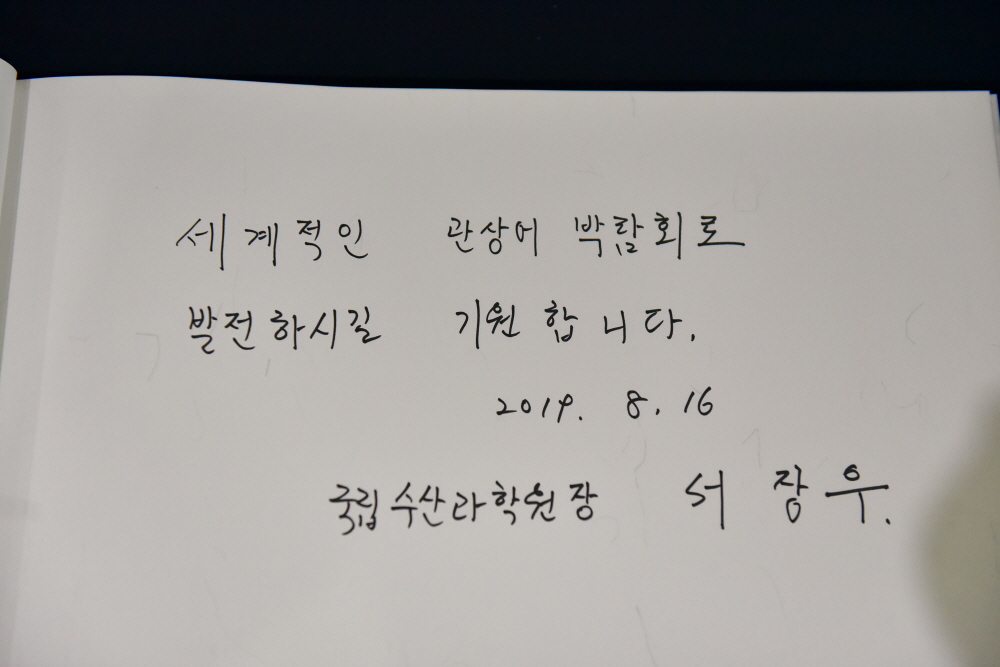 세계적인 관상어 박람회로
발전하시길 기원합니다.
2019. 8. 16
국립수산과학원장 서 장 우.